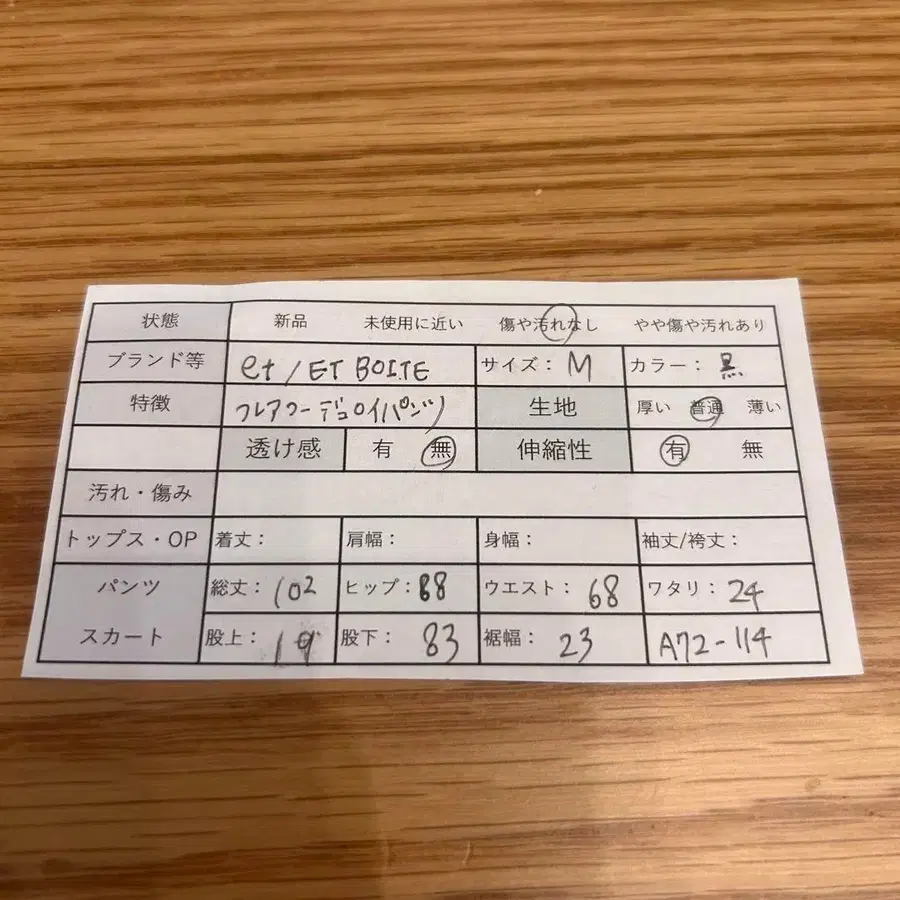 状態 新品 未使用に近い 傷や汚れなし やや傷や汚れあり
ブランド等 et/ET BOITE サイズ： M カラー： 黒
特徴 フレアコーデュロイパンツ 生地 厚い 普通 薄い
透け感 有 無 伸縮性 有 無
汚れ・傷み
トップス・OP 着丈： 肩幅： 身幅： 袖丈/裄丈：
パンツ 総丈： 102 ヒップ： 88 ウエスト： 68 ワタリ： 24
スカート 股上： 19 股下： 83 裾幅： 23 A72-114